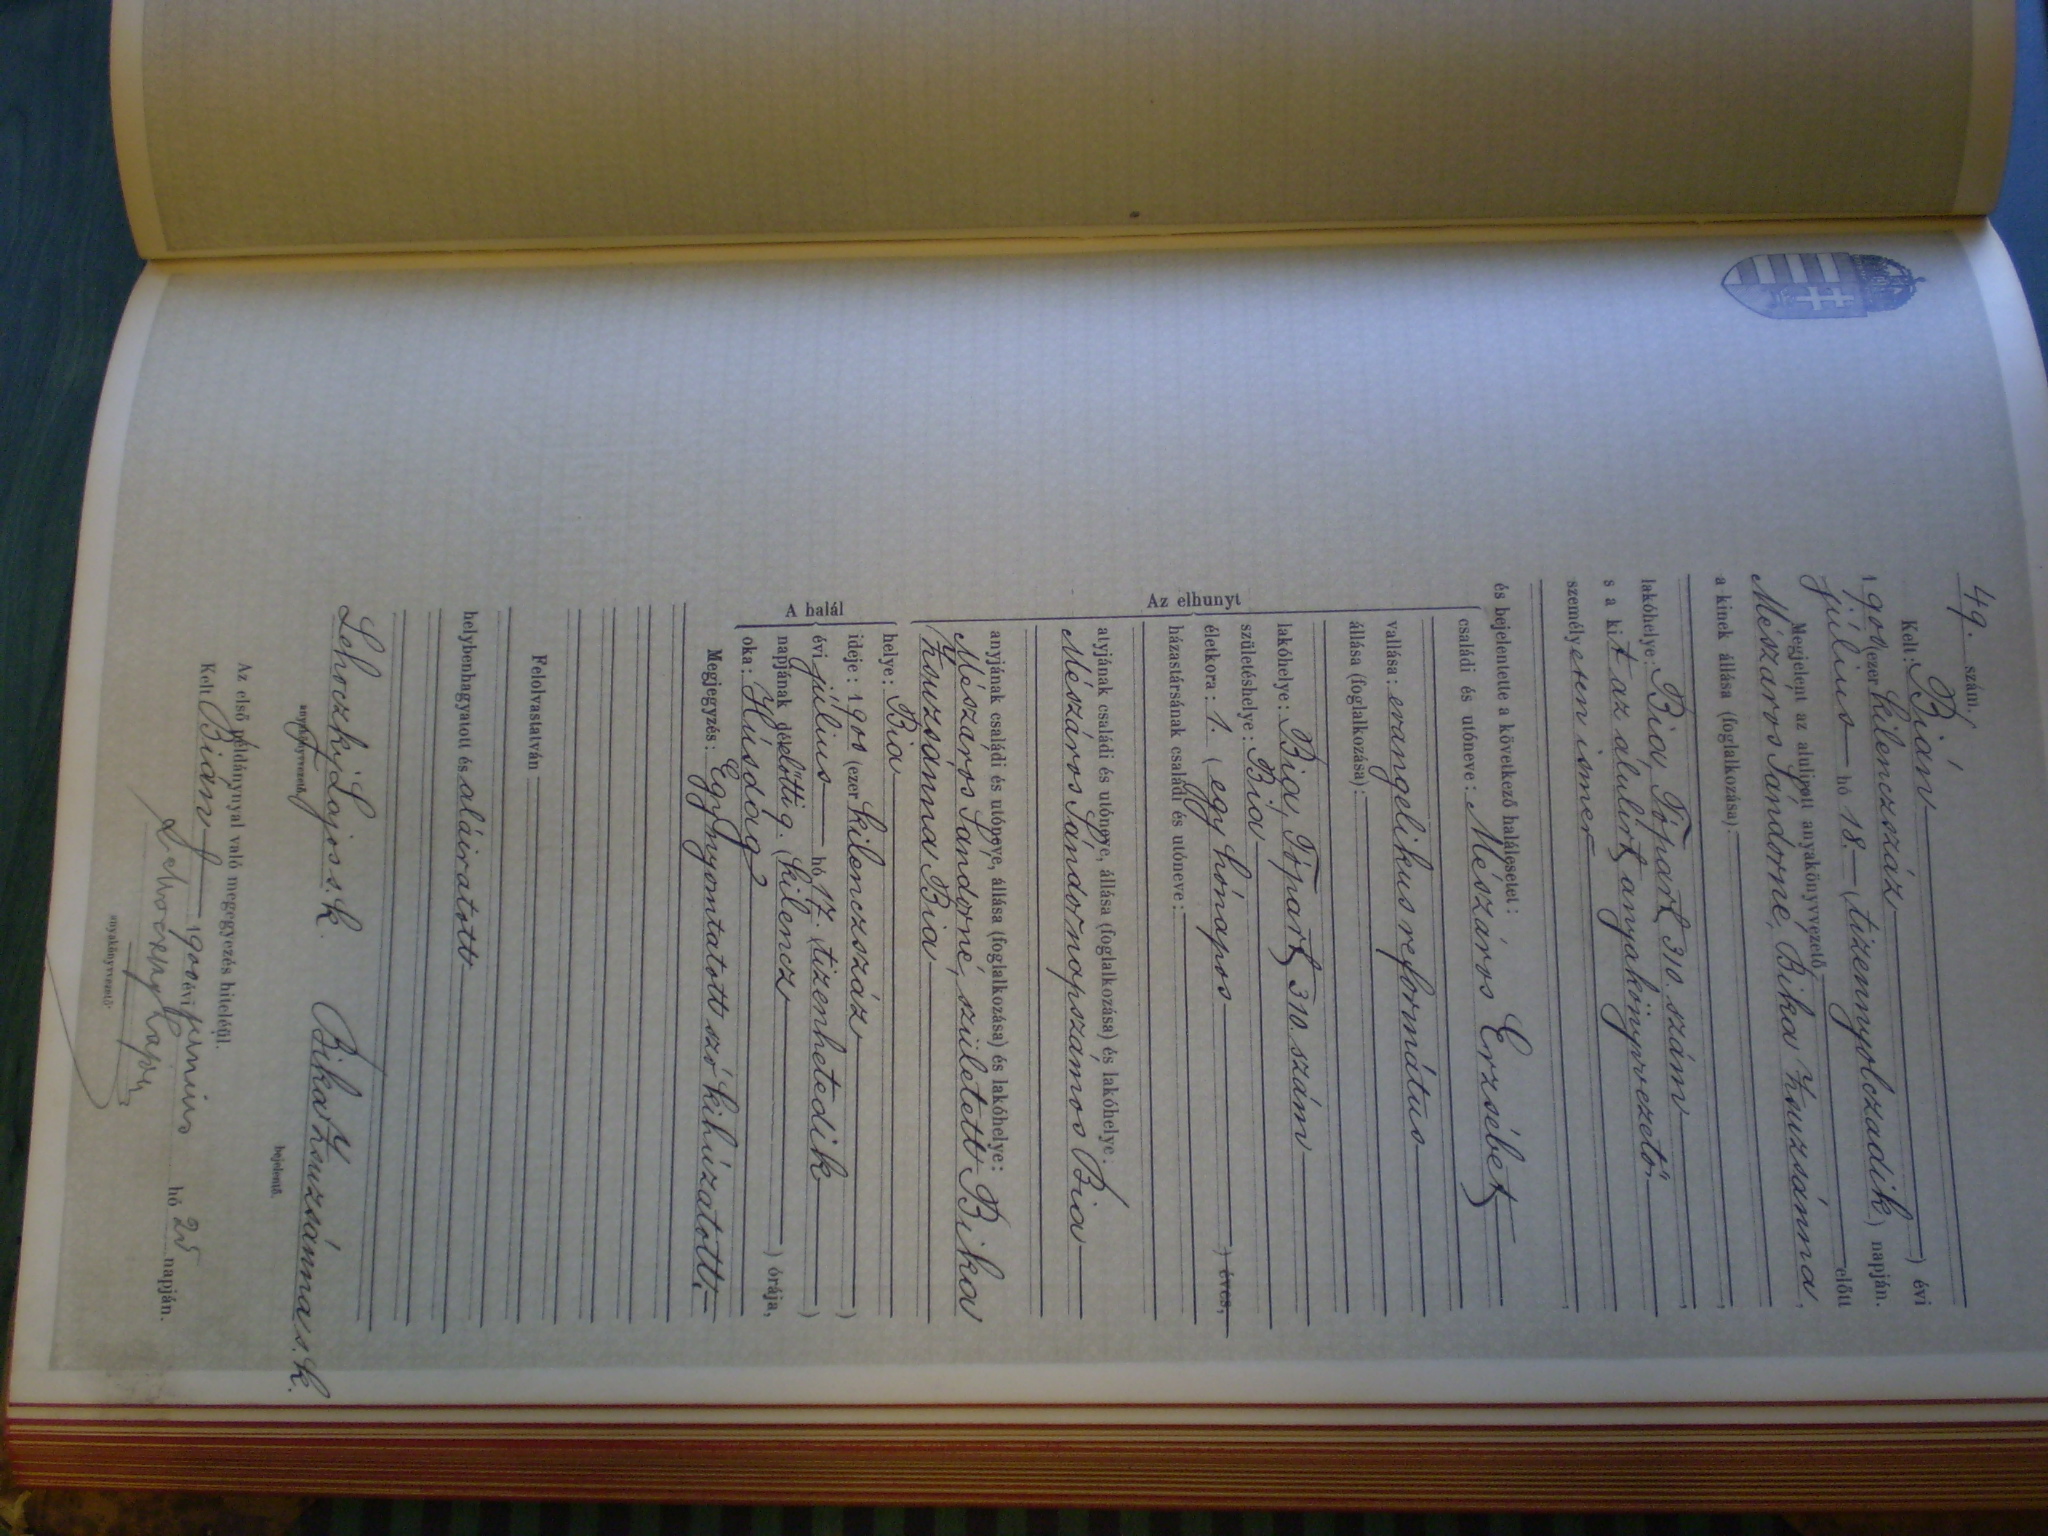 49. szám.
Kelt: Bián ) évi
1900 (ezer kilenczszáz
július hó 18. (tizennyolczadik) napján.
Megjelent az alulirott anyakönyvvezető előtt
Mészáros Sándorné, Bika Zsuzsánna,
a kinek állása (foglalkozása):
lakóhelye: Bia, Tópart 310. szám
s a kit az alulírt anyakönyvvezető
személyesen ismer
és bejelentette a következő halálesetet:
Az elhunyt
családi és utóneve: Mészáros Erzsébet
vallása: evangelikus református
állása (foglalkozása):
lakóhelye: Bia, Tópart 310. szám
születéshelye: Bia
életkora: 1. (egy hónapos ) éves,
házastársának családi és utóneve:
atyjának családi és utóneve, állása (foglalkozása) és lakóhelye:
Mészáros Sándor napszámos Bia
anyjának családi és utóneve, állása (foglalkozása) és lakóhelye:
Mészáros Sándorné, született Bika
Zsuzsánna Bia
A halál
helye: Bia
ideje: 1900 (ezer kilenczszáz )
évi július hó 17. (tizenhetedik )
napjának délelőtti 9. (kilencz ) órája,
oka: Húsdág
Megjegyzés: Egy nyomtatott szó kihúzatott;
Felolvastatván
helybenhagyatott és aláíratott
Lehoczky Lajos s. k. Bika Zsuzsánna s. k.
anyakönyvvezető. bejelentő.
Az első példánynyal való megegyezés hiteléül.
Kelt Bián 1900 évi hó 25 napján.
Lehoczky Lajos
anyakönyvvezető.